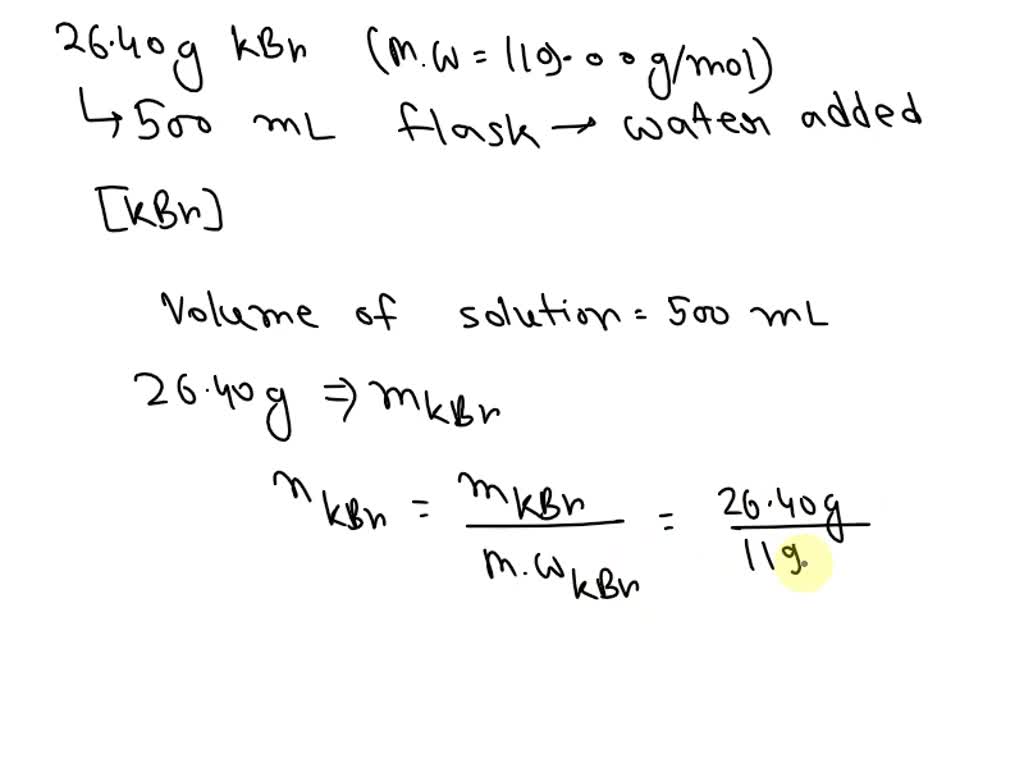 26.40g kBr (m.w = 119.00g/mol)
↳ 500 mL flask → water added
[kBr]
Volume of solution = 500 mL
26.40g ⇒ mkBr
nkBr = mkBr / m.wkBr = 26.40g / 119.